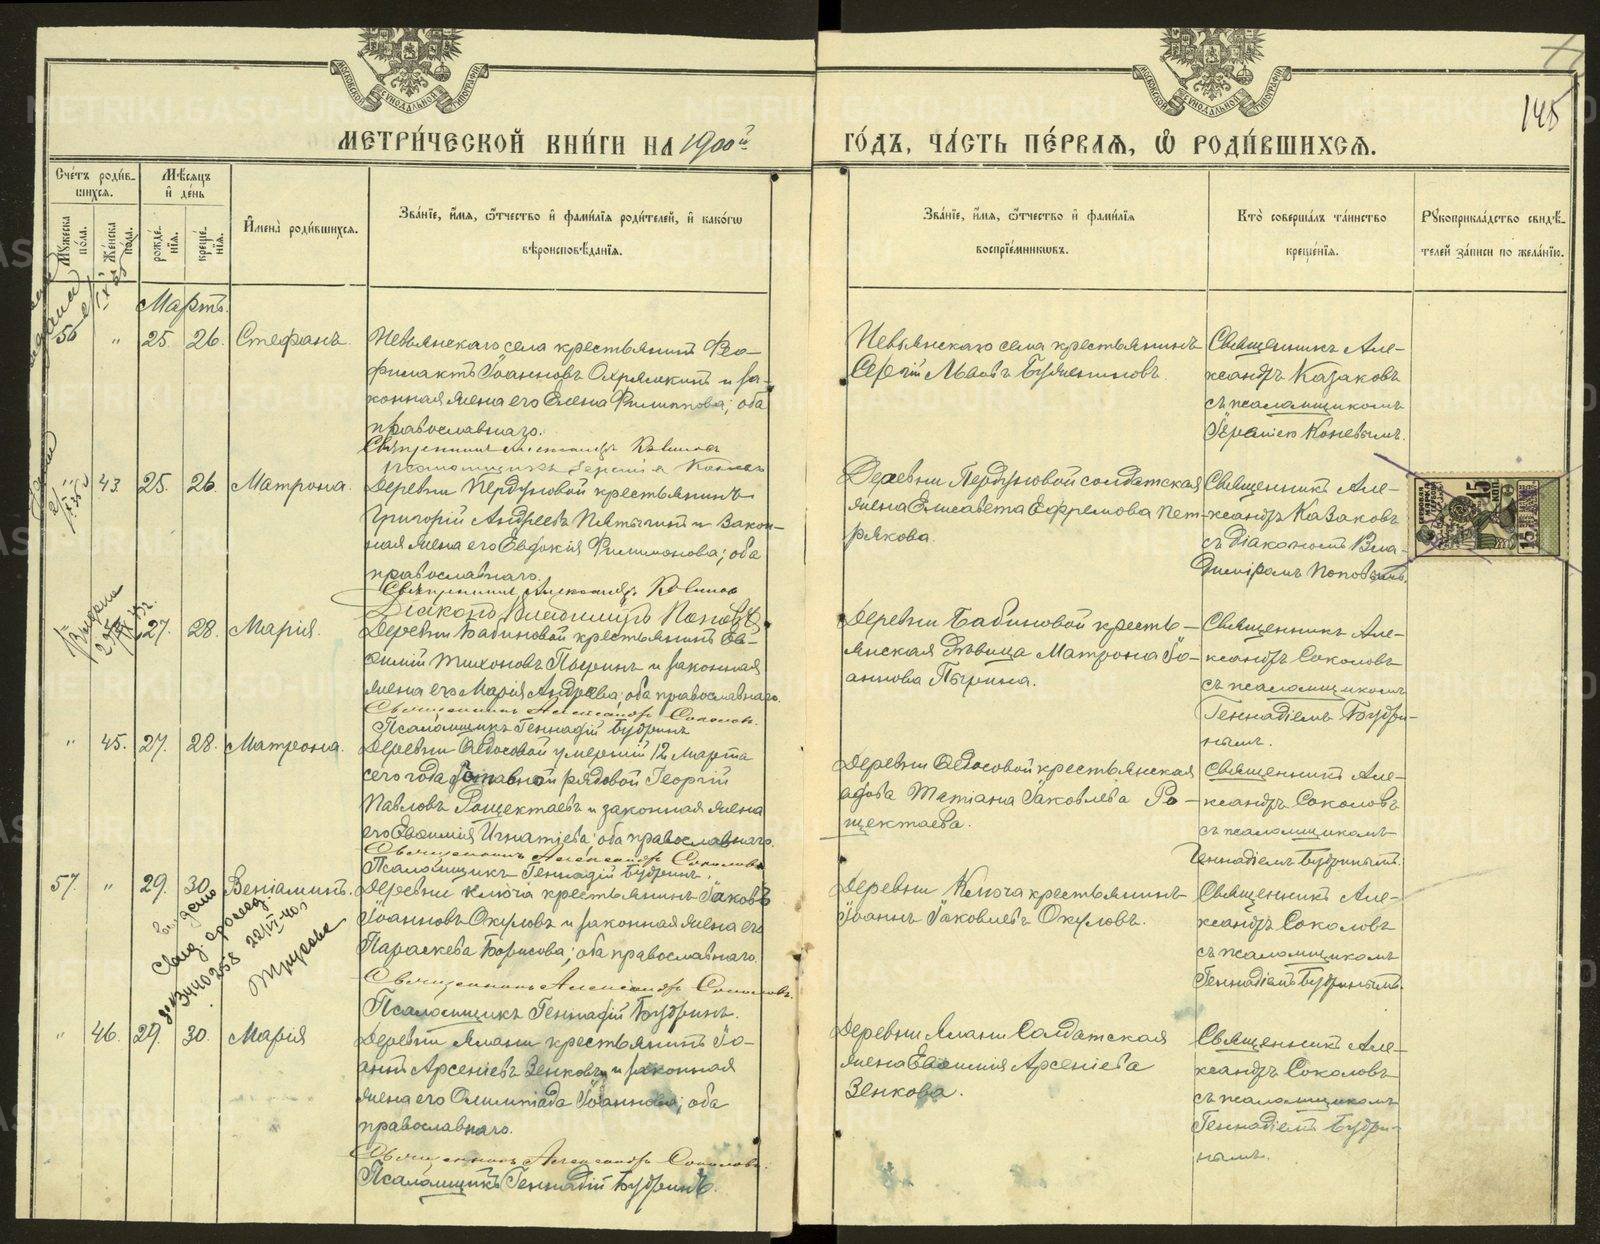 МОСКОВСКОЙ СѴНОДАЛЬНОЙ ТИПОГРАФІИ
МОСКОВСКОЙ СѴНОДАЛЬНОЙ ТИПОГРАФІИ
145
МЕТРИ́ЧЕСКОЙ КНИ́ГИ НА 1900й
ГО́ДЪ, ЧА́СТЬ ПЕ́РВАЯ, Ѡ РОДИ́ВШИХСЯ.
Сче́тъ роди́в-
шихся.
Му́жеска по́ла.
Же́нска по́ла.
Мѣ́сяцъ
и де́нь
рожде́-
нія.
креще́-
нія.
Имена̀ роди́вшихся.
Зва́ніе, и́мя, о́тчество и фами́лія роди́телей, и како́гѡ
вѣроисповѣ́данія.
Зва́ніе, и́мя, о́тчество и фами́лія
воспріе́мниковъ.
Кто̀ соверша́лъ та́инство
креще́нія.
Рукоприкла́дство свидѣ́-
телей за́писи по жела́нію.
Мартъ.
56 " 25. 26. Стефанъ.
Невьянскаго села крестьянинъ Фео-
филактъ Іоанновъ Охрямкинъ и за-
конная жена его Елена Филиппова; оба
православнаго.
Невьянскаго села крестьянинъ
Сергій Львовъ
Священникъ Але-
ксандръ Казаковъ
съ псаломщикомъ
Коневымъ.
" 43. 25. 26. Матрона.
Деревни Пердуновой крестьянинъ
Григорій Андреевъ Пятыгинъ и закон-
ная жена его Евдокія Филимонова; оба
православнаго.
Діаконъ Владиміръ Поповъ
Деревни Пердуновой солдатская
жена Елисавета Ефремова Пет-
рякова.
Священникъ Але-
ксандръ Казаковъ
съ діакономъ Вла-
диміромъ Поповымъ.
15 КОП.
27. 28. Марія.
Деревни Бабиновой крестьянинъ Ев-
фимій Тихоновъ Пыринъ и законная
жена его Марія Андреева; оба православнаго.
Священникъ Александръ Соколовъ.
Псаломщикъ Геннадій Бубринъ
Деревни Бабиновой кресть-
янская дѣвица Матрона Іо-
аннова Пырина.
Священникъ Але-
ксандръ Соколовъ
съ псаломщикомъ
Геннадіемъ Бубри-
нымъ.
" 45. 27. 28. Матрона.
Деревни Ѳедосовой умершій 12 Марта
сего года отставной рядовой Георгій
Павловъ Рощектаевъ и законная жена
его Евѳимія Игнатіева; оба православнаго.
Священникъ Александръ Соколовъ
Псаломщикъ Геннадій Бубринъ.
Деревни Ѳедосовой крестьянская
вдова Татіана Іаковлева Ро-
щектаева.
Священникъ Але-
ксандръ Соколовъ
съ псаломщикомъ
Геннадіемъ Бубринымъ.
57. " 29. 30. Веніаминъ.
Деревни Ключа крестьянинъ Іаковъ
Іоанновъ Окуловъ и законная жена его
Параскева Борисова; оба православнаго.
Священникъ Александръ Соколовъ.
Псаломщикъ Геннадій Бубринъ.
Деревни Ключа крестьянинъ
Іоаннъ Іаковлевъ Окуловъ.
Священникъ Але-
ксандръ Соколовъ
съ псаломщикомъ
Геннадіемъ Бубринымъ.
" 46. 29. 30. Марія
Деревни Ялани крестьянинъ Іо-
аннъ Арсеніевъ Зенковъ и законная
жена его Олимпіада Іоаннова; оба
православнаго.
Священникъ Александръ Соколовъ.
Псаломщикъ Геннадій Бубринъ.
Деревни Ялани Солдатская
жена Евѳимія Арсеніева
Зенкова.
Священникъ Але-
ксандръ Соколовъ
съ псаломщикомъ
Геннадіемъ Бубри-
нымъ.
METRIKI.GASO-URAL.RU